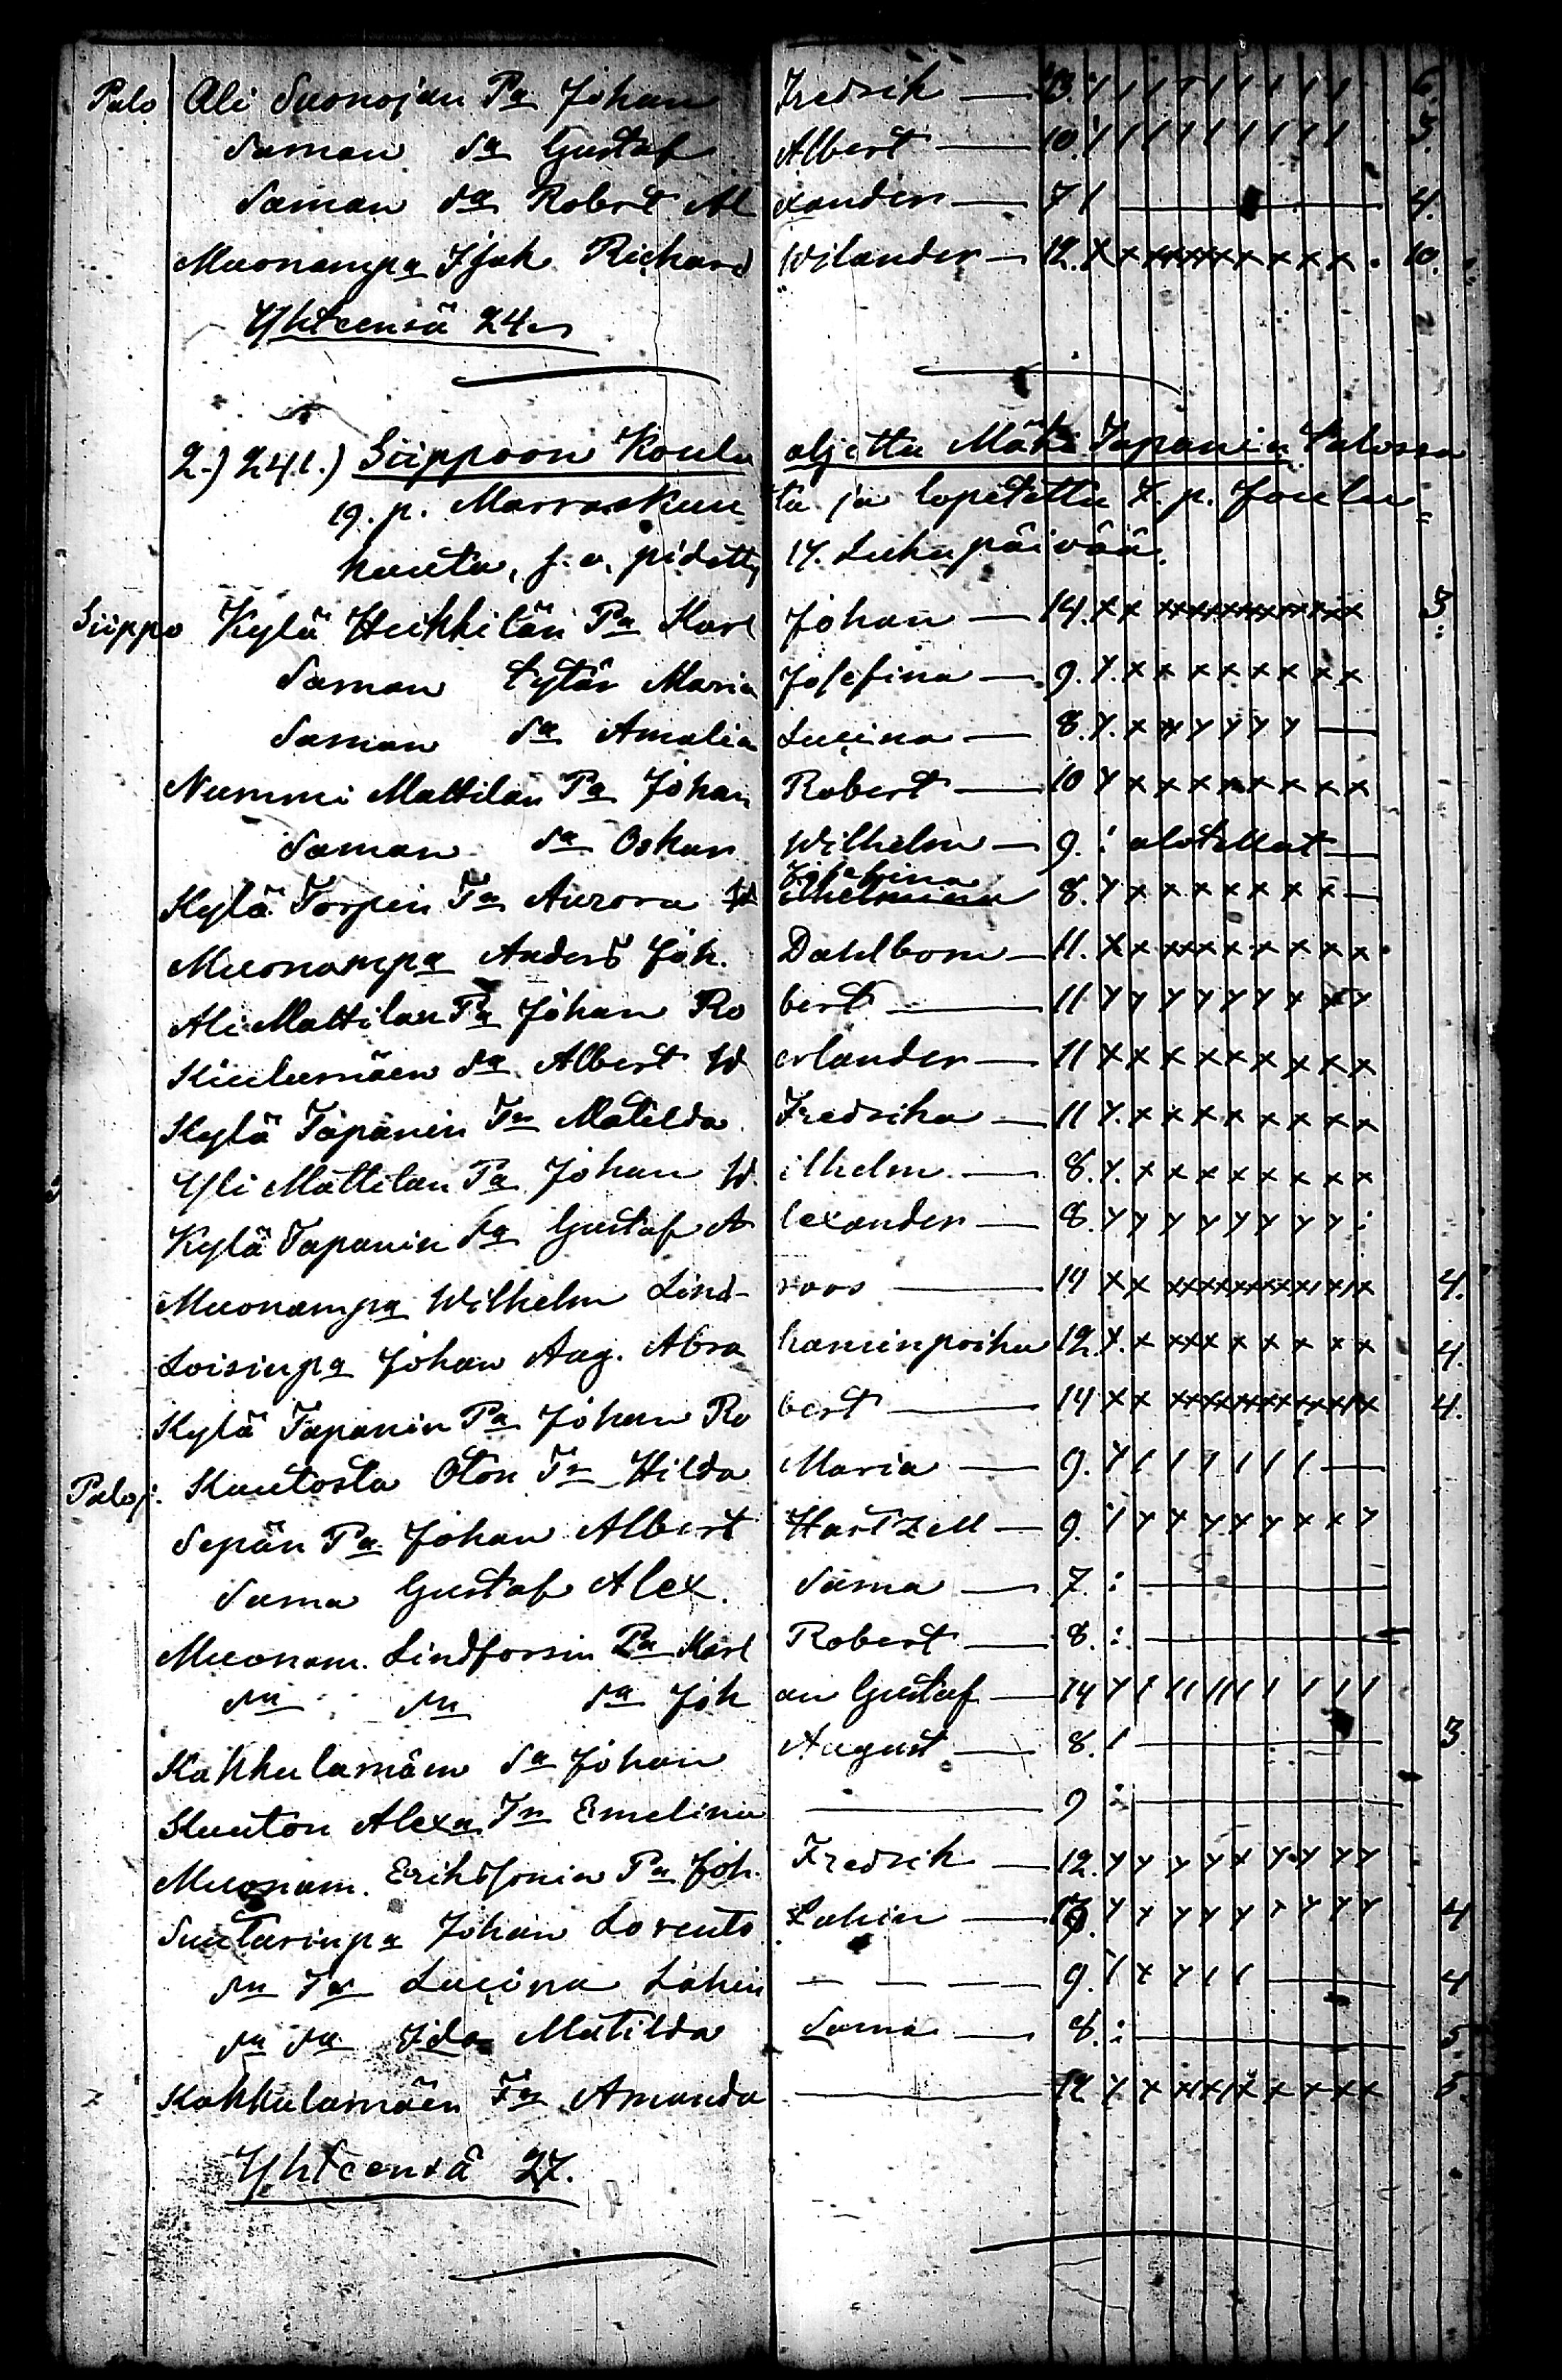 Palo Ali Suonojan Pa Johan Fredrik — 13. 6.
Saman Sa Gustaf Albert — 10. 3.
Saman Sa Robert Alexander — 7 4.
Muonampa Isak Richard Wilander — 12. 10.
Yhteensä 24
2.) 24.l.) Siippoon Koulu aljettu Mäki Tapanin Talossa
19. p. Marraskuuta ja lopetettu 7. p. Joulu=
kuuta, j. o. pidetty 17. Lukupäivää.
Siippo Kylä Heikkilän Pa Karl Johan — 14. xx xxxxxxxxxxxx 3.
Saman tytär Maria Josefina — 9. y. x x x x x x x x
Saman Sa Amalia Lucina — 8. y. x x y y y y —
Nummi Mattilan Pa Johan Robert — 10 y x x x x x x x x
Saman Sa Oskar Wilhelm — 9. : alotellut —
Kylä Torpin Tr Aurora Josefina 8. y x x x x x x x —
Muonampa Anders Joh. Dahlbom — 11. x x xxx x x x x x
Ali Mattilan Pa Johan Robert — 11 y y y y y y y y y
Kiulumäen Sa Albert Werlander — 11 x x x x x x x x x
Kylä Tapanin Tr Matilda Fredrika — 11 y. x x x x x x x x
Yli Mattilan Pa Johan Wilhelm — 8. y. x x x x x x x x
Kylä Tapanin Sa Gustaf Alexander — 8. y y y y y y y y :
Muonampa Wilhelm Lindroos — 14 x x xxxxxxxxxxxx 4.
Loisinpa Johan Aug. Abrahaminpoika 12. y. x xxx x x x x x 4.
Kylä Tapanin Pa Johan Robert — 14 x x xxxxxxxxxxxx 4.
Paloj. Kuutosta Oton Tr Hilda Maria — 9. y / / / / / / —
Sepän Pa Johan Albert Hartzell — 9. / y y y y y x x y
Sama Gustaf Alex. Sama — 7. : —
Muonam. Lindforsin Pa Karl Robert — 8. : —
Sa Sa Sa Johan Gustaf — 14 y / // /// / / / /
Kakkulamäen Sa Johan August — 8. / — 3.
Kuuton Alexa Tr Emelina — 9 : —
Muonam. Eriksonin Pa Joh. Fredrik — 12. y y y y x y y y y
Suutarinpa Johan Lorents Lahin — y y y y y y y y y 4
Sa Tr Lucina Lahin — — — 9. / x y / / — 4
Sa Sa Ida Matilda Sama — 8. : — 5.
Kakkulamäen Tr Amanda — 12 y x xxxxx x x x x 5.
Yhteensä 27.